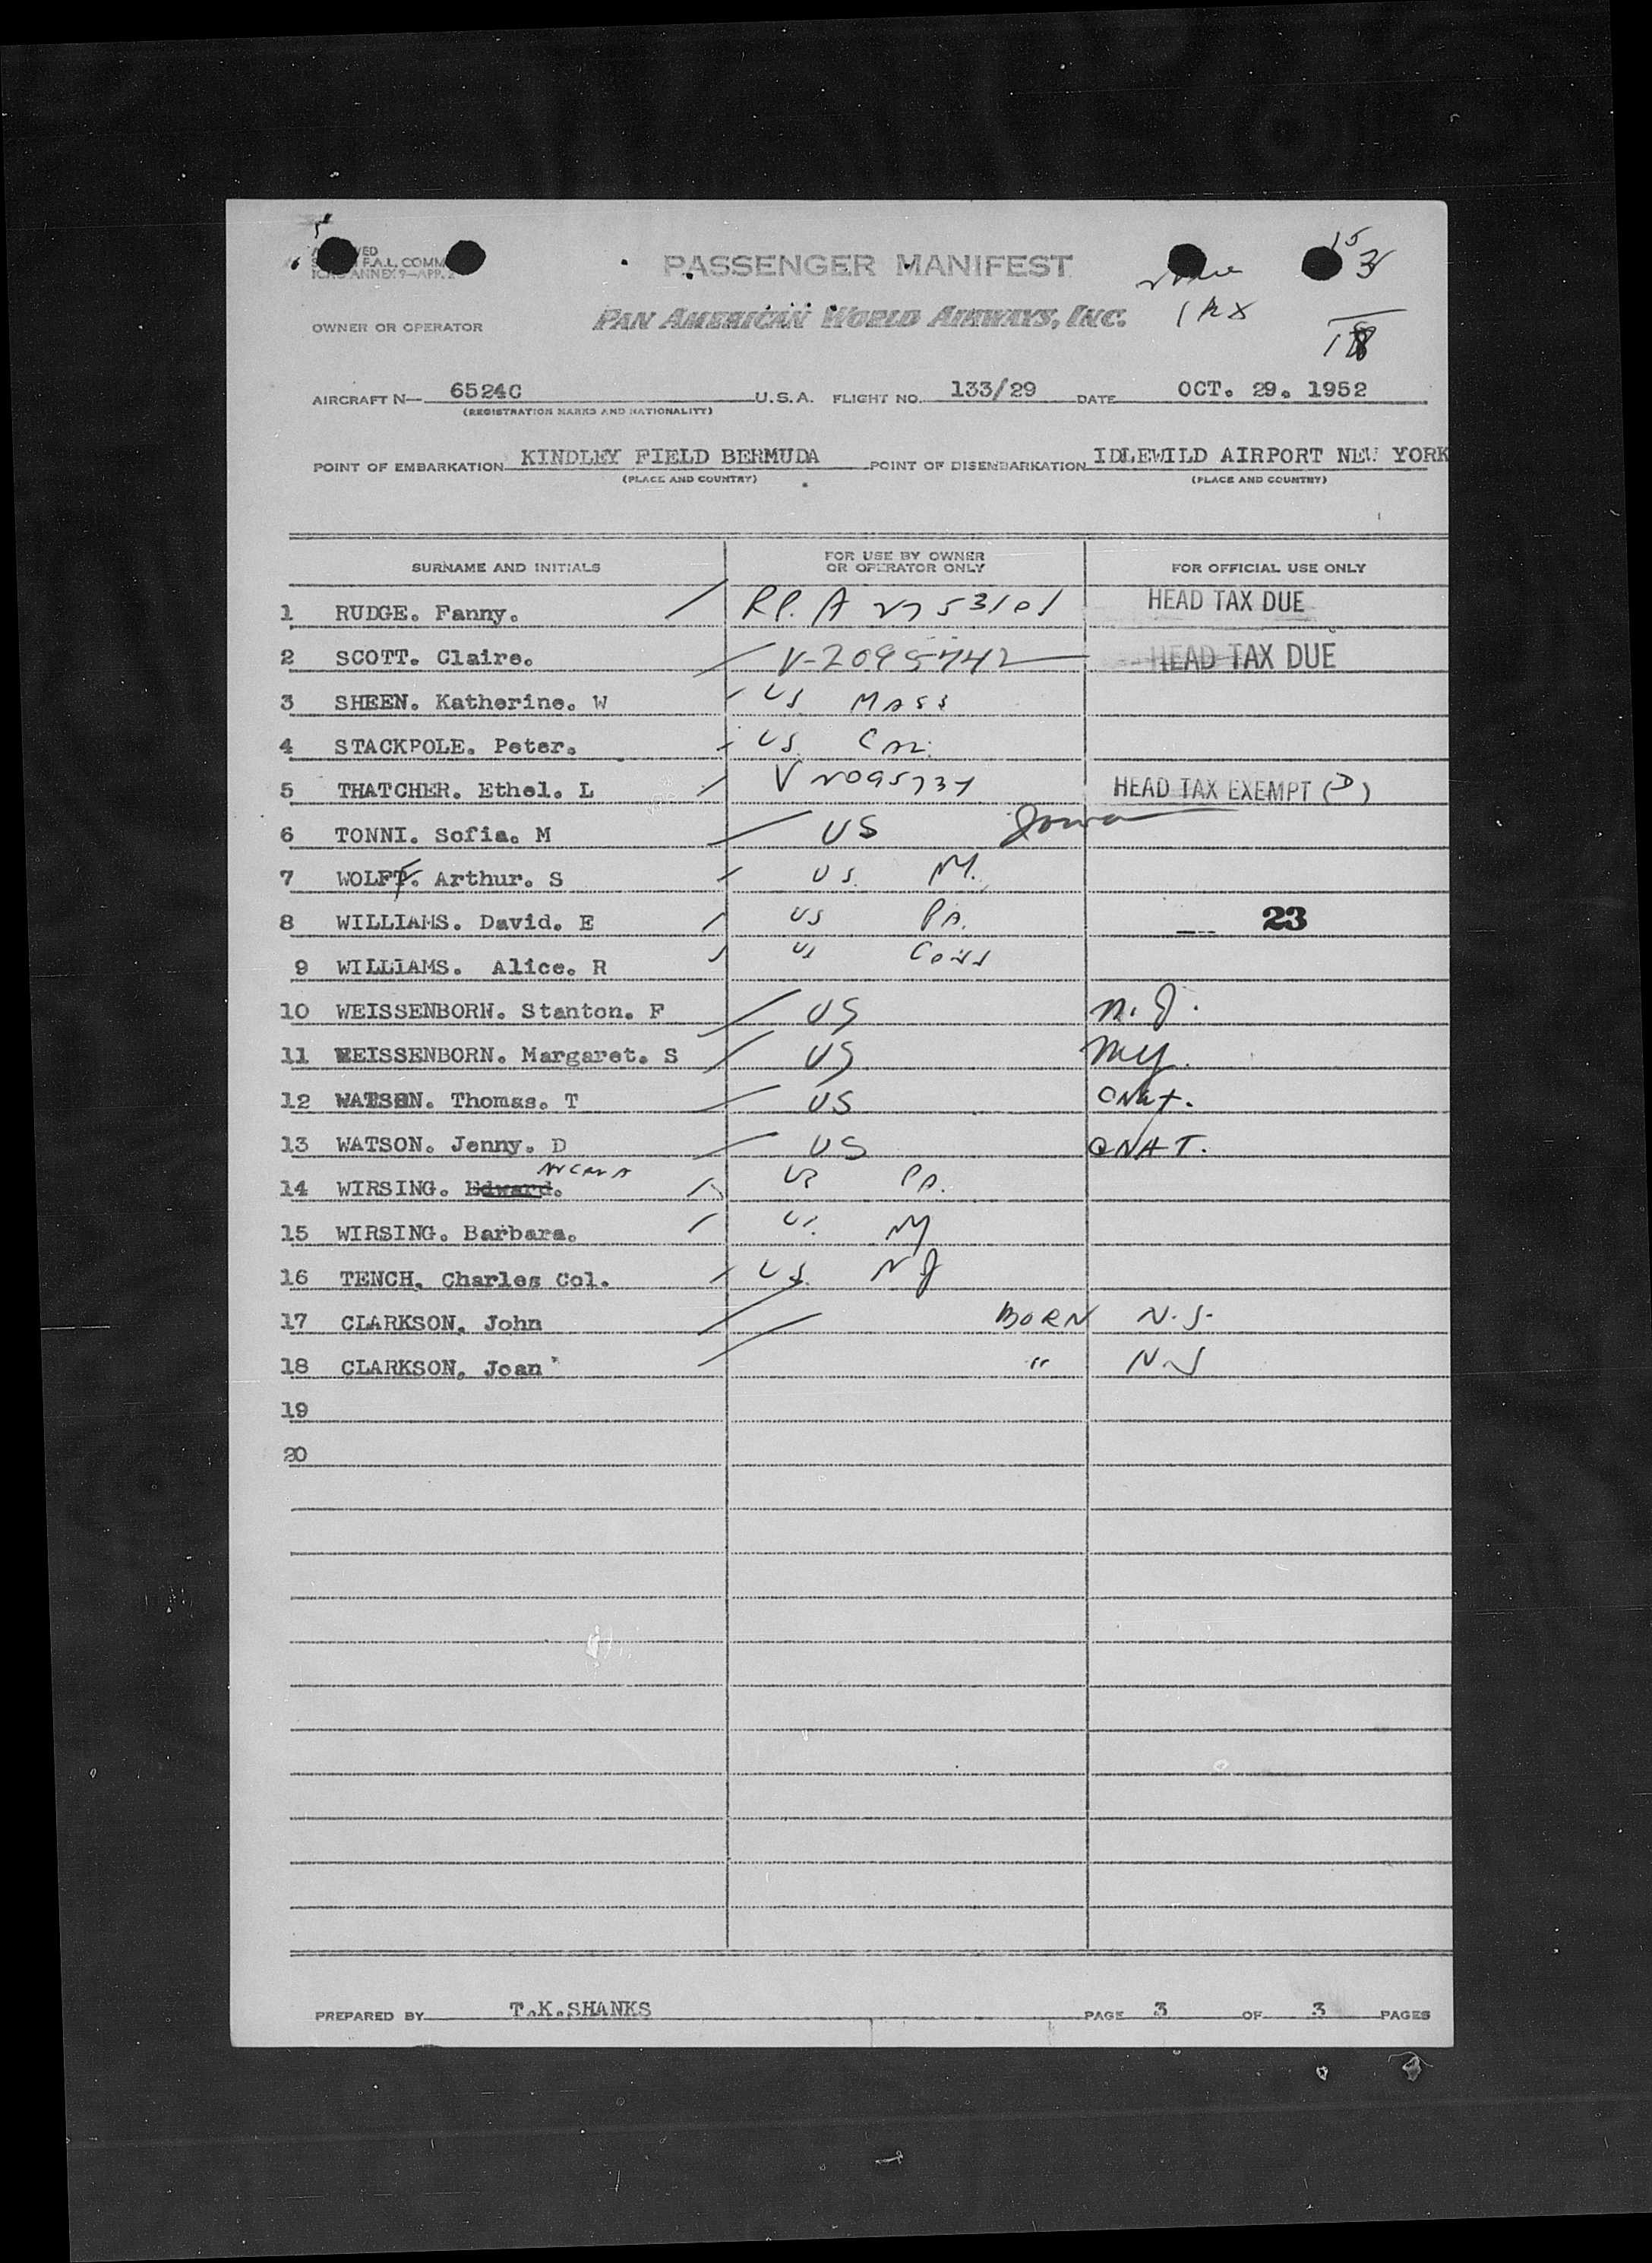 PASSENGER MANIFEST
OWNER OR OPERATOR PAN AMERICAN WORLD AIRWAYS, INC.
AIRCRAFT N— 6524C U.S.A. FLIGHT NO. 133/29 DATE OCT. 29. 1952
(REGISTRATION MARKS AND NATIONALITY)
POINT OF EMBARKATION KINDLEY FIELD BERMUDA POINT OF DISEMBARKATION IDLEWILD AIRPORT NEW YORK
(PLACE AND COUNTRY) (PLACE AND COUNTRY)
SURNAME AND INITIALS FOR USE BY OWNER OR OPERATOR ONLY FOR OFFICIAL USE ONLY
1 RUDGE. Fanny. HEAD TAX DUE
2 SCOTT. Claire. V-2095742 HEAD TAX DUE
3 SHEEN. Katherine. W US MASS
4 STACKPOLE. Peter. US CAL.
5 THATCHER. Ethel. L HEAD TAX EXEMPT (D)
6 TONNI. Sofia. M US Iowa
7 WOLFF. Arthur. S US.
8 WILLIAMS. David. E US PA. 23
9 WILLIAMS. Alice. R US CONN
10 WEISSENBORN. Stanton. F US N.J.
11 WEISSENBORN. Margaret. S US NY.
12 WATSON. Thomas. T US CNAT.
13 WATSON. Jenny. D US CNAT.
14 WIRSING. Edward. US PA.
15 WIRSING. Barbara. US NY
16 TENCH. Charles Col. US. NJ
17 CLARKSON. John BORN N.J.
18 CLARKSON. Joan " N.J
19
20
PREPARED BY T.K.SHANKS PAGE 3 OF 3 PAGES